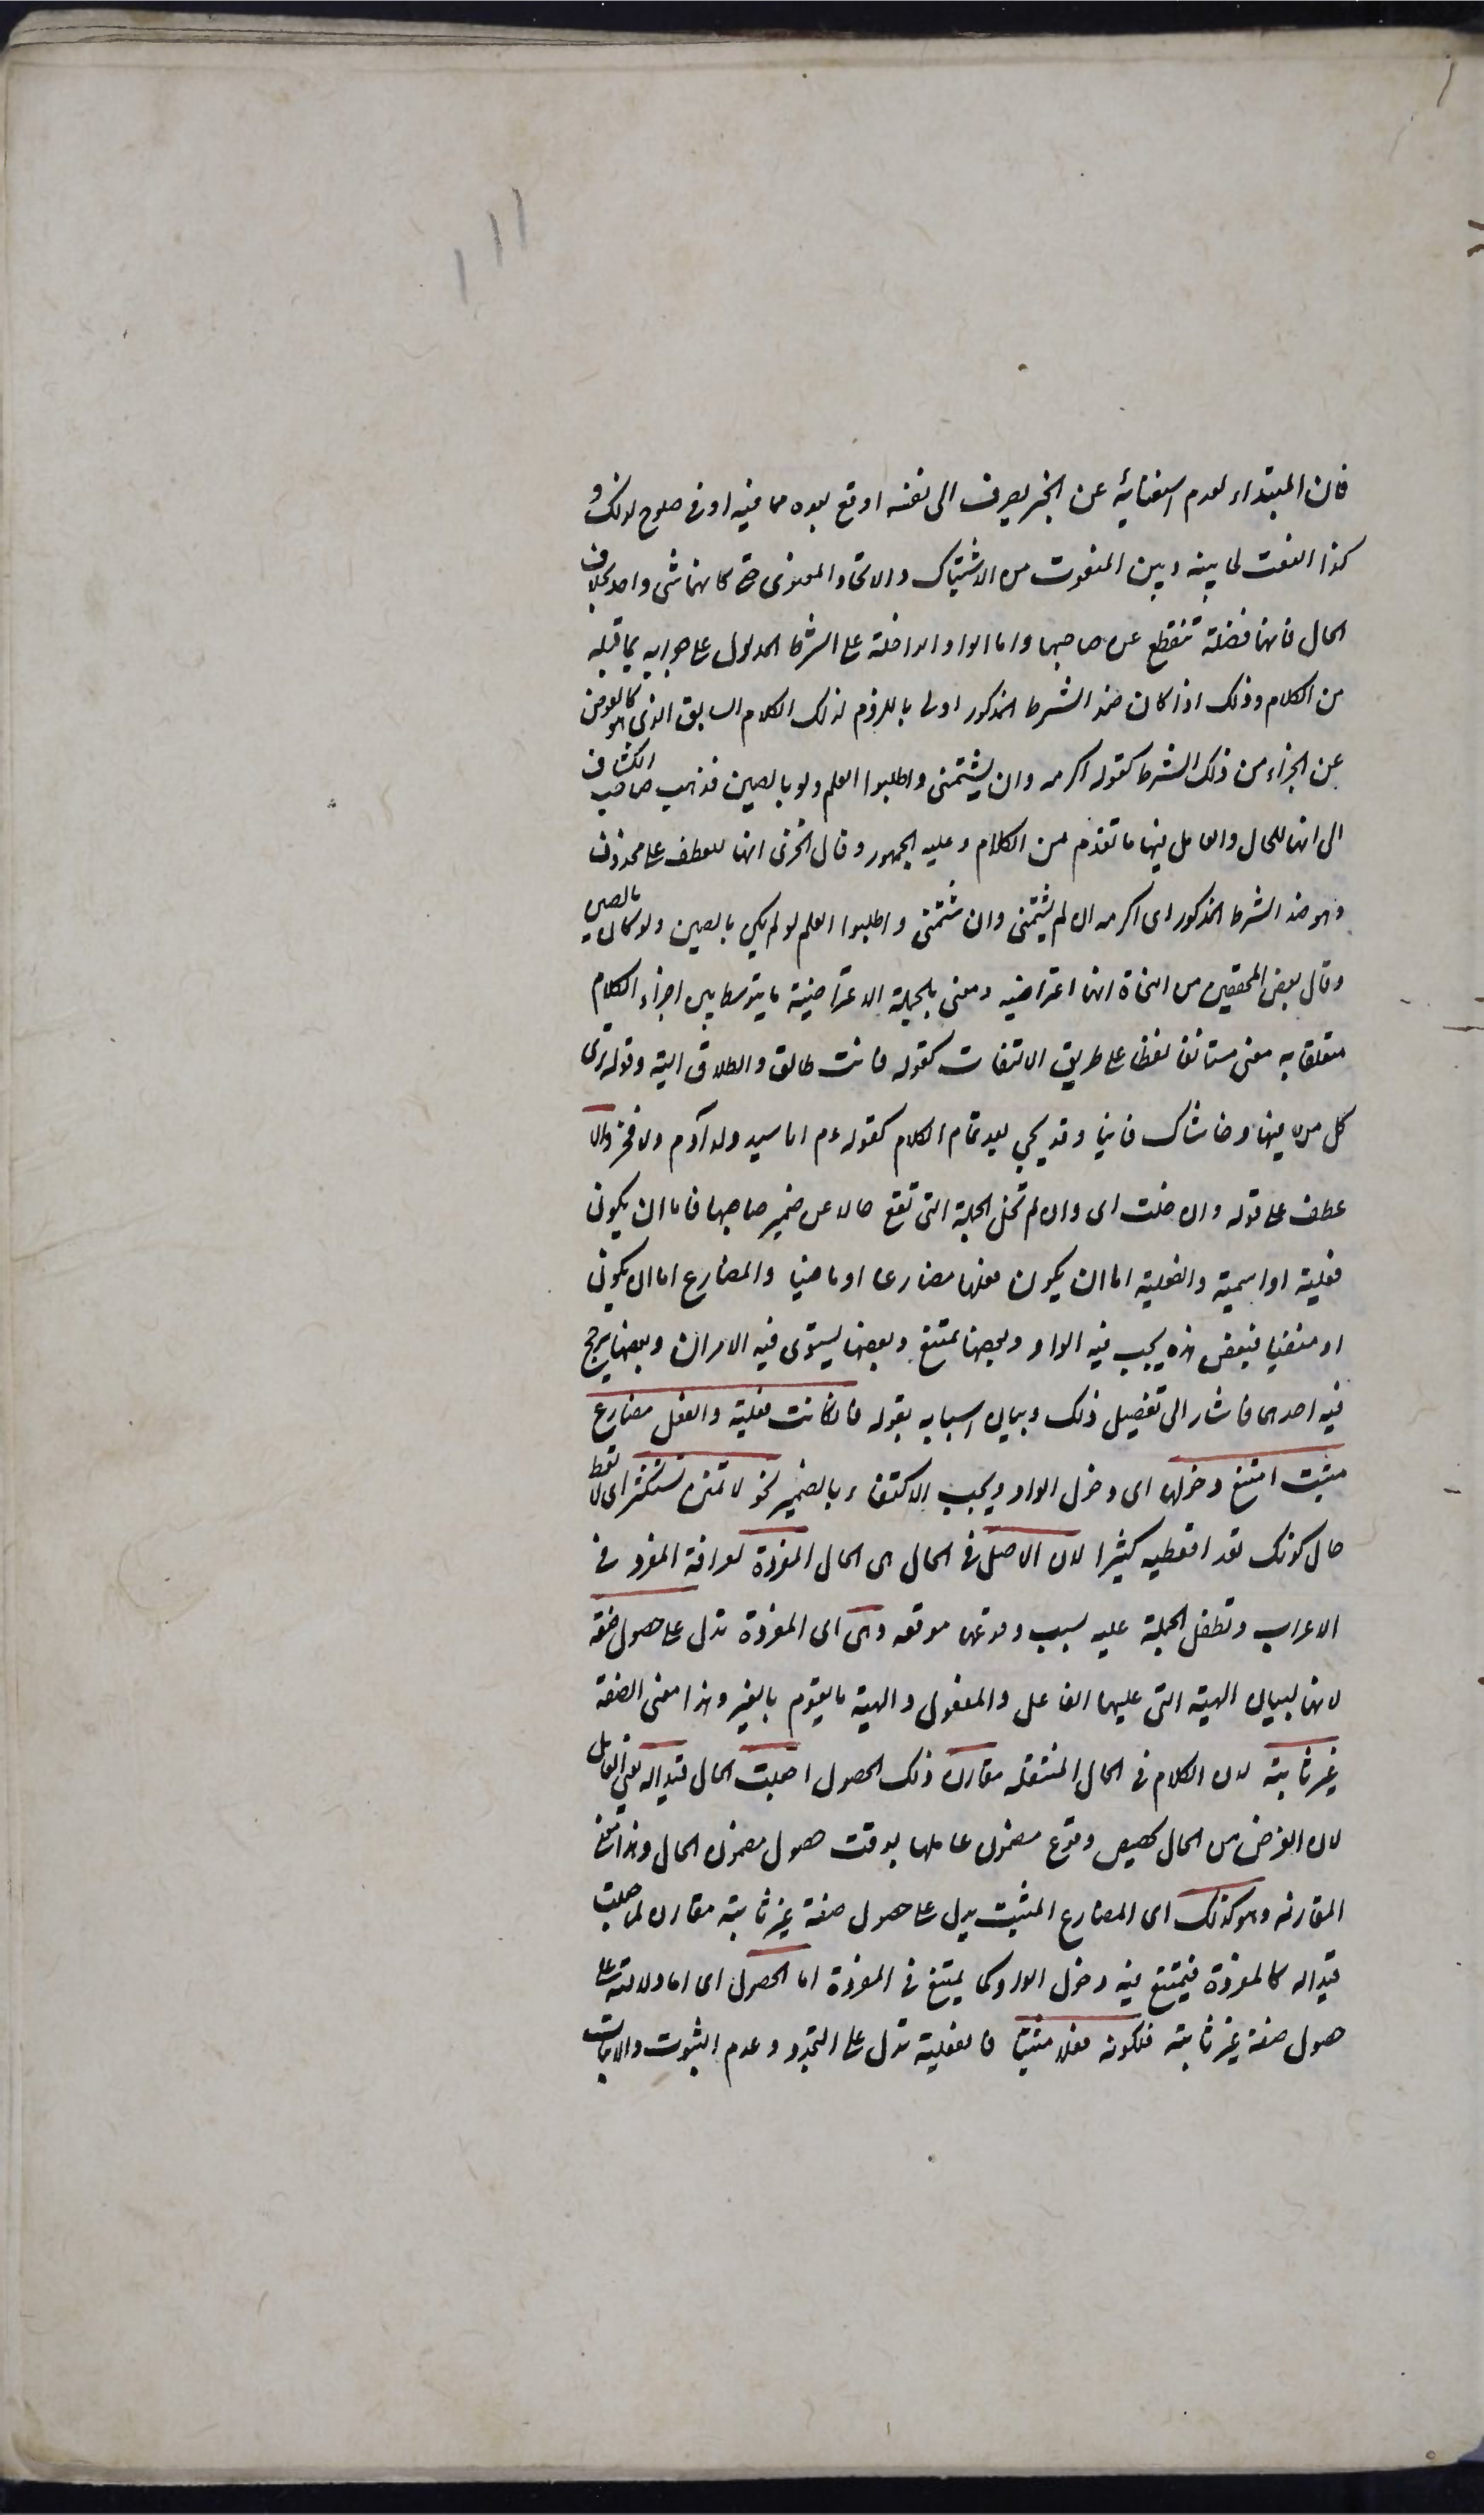 فان المبتداء لعدم استغنائه عن الخبر يصرف الى نفسه اوقع بعده مما فيه ادنى صلوح لذلك و
كذا النعت لما بينه وبين المنعوت من الاشتباك والاتحاد المعنوى حتى كانهما شئ واحد بخلاف
الحال فانها فضلة تنقطع عن صاحبها واما الواو الداخلة على الشرط المدلول على جوابه بما قبله
من الكلام وذلك اذا كان ضد الشرط المذكور اولى باللزوم لذلك الكلام السابق الذى هو كالعوض
عن الجزاء من ذلك الشرط كقوله اكرمه وان يشتمنى واطلبوا العلم ولو بالصين فذهب صاحب الكشاف
الى انها للحال والعامل فيها ما تقدم من الكلام وعليه الجمهور وقال الجزى انها للعطف على محذوف
وهو ضد الشرط المذكور اى اكرمه ان لم يشتمنى وان شتمنى واطلبوا العلم لو لم يكن بالصين ولو كان بالصين
وقال بعض المحققين من النحاة انها اعتراضيه ومعنى بالجملة الاعتراضية ما يتوسط بين اجزاء الكلام
متعلقا به معنى مستانفا لفظا على طريق الالتفات كقوله فانت طالق والطلاق الية وقوله ترى
كل من فيها وحاشاك فانيا وقد يجئ بعد تمام الكلام كقوله عم انا سيد ولد آدم ولا فخر والا
عطف على قوله وان خلت اى وان لم تخل الجملة التى تقع حالا عن ضمير صاحبها فاما ان يكون
فعلية او اسمية والفعلية اما ان يكون فعلها مضارعا او ماضيا والمضارع اما ان يكون
او منفيا فبعض هذه يجب فيه الواو وبعضها يمتنع وبعضها يستوى فيه الامران وبعضها يترجح
فيه احدهما فاشار الى تفصيل ذلك وبيان اسبابه بقوله فان كانت فعلية والفعل مضارع
مثبت امتنع دخولها اى دخول الواو ويجب الاكتفاء بالضمير نحو لا تمنن تستكثر اى لا تعط
حال كونك تعد ما تعطيه كثيرا لان الاصل فى الحال هى الحال المفردة لعراقة المفرد فى
الاعراب وتطفل الجملة عليه بسبب وقوعها موقعه وهى اى المفردة تدل على حصول صفة
لانها لبيان الهيئة التى عليها الفاعل والمفعول والهيئة ما يقوم بالغير وهذا معنى الصفة
غير ثابتة لان الكلام فى الحال المنتقلة مقارن ذلك الحصول لما جعلت الحال قيدا له يعنى العامل
لان الغرض من الحال تخصيص وقوع مضمون عاملها بوقت حصول مضمون الحال وهذا معنى
المقارنة وهو كذلك اى المضارع المثبت يدل على حصول صفة غير ثابتة مقارن لما جعلت
قيدا له كالمفردة فيمتنع فيه دخول الواو كما يمتنع فى المفردة اما الحصول اى اما دلالته على
حصول صفة غير ثابتة فلكونه فعلا مثبتا فالفعلية تدل على التجدد وعدم الثبوت والاثبات